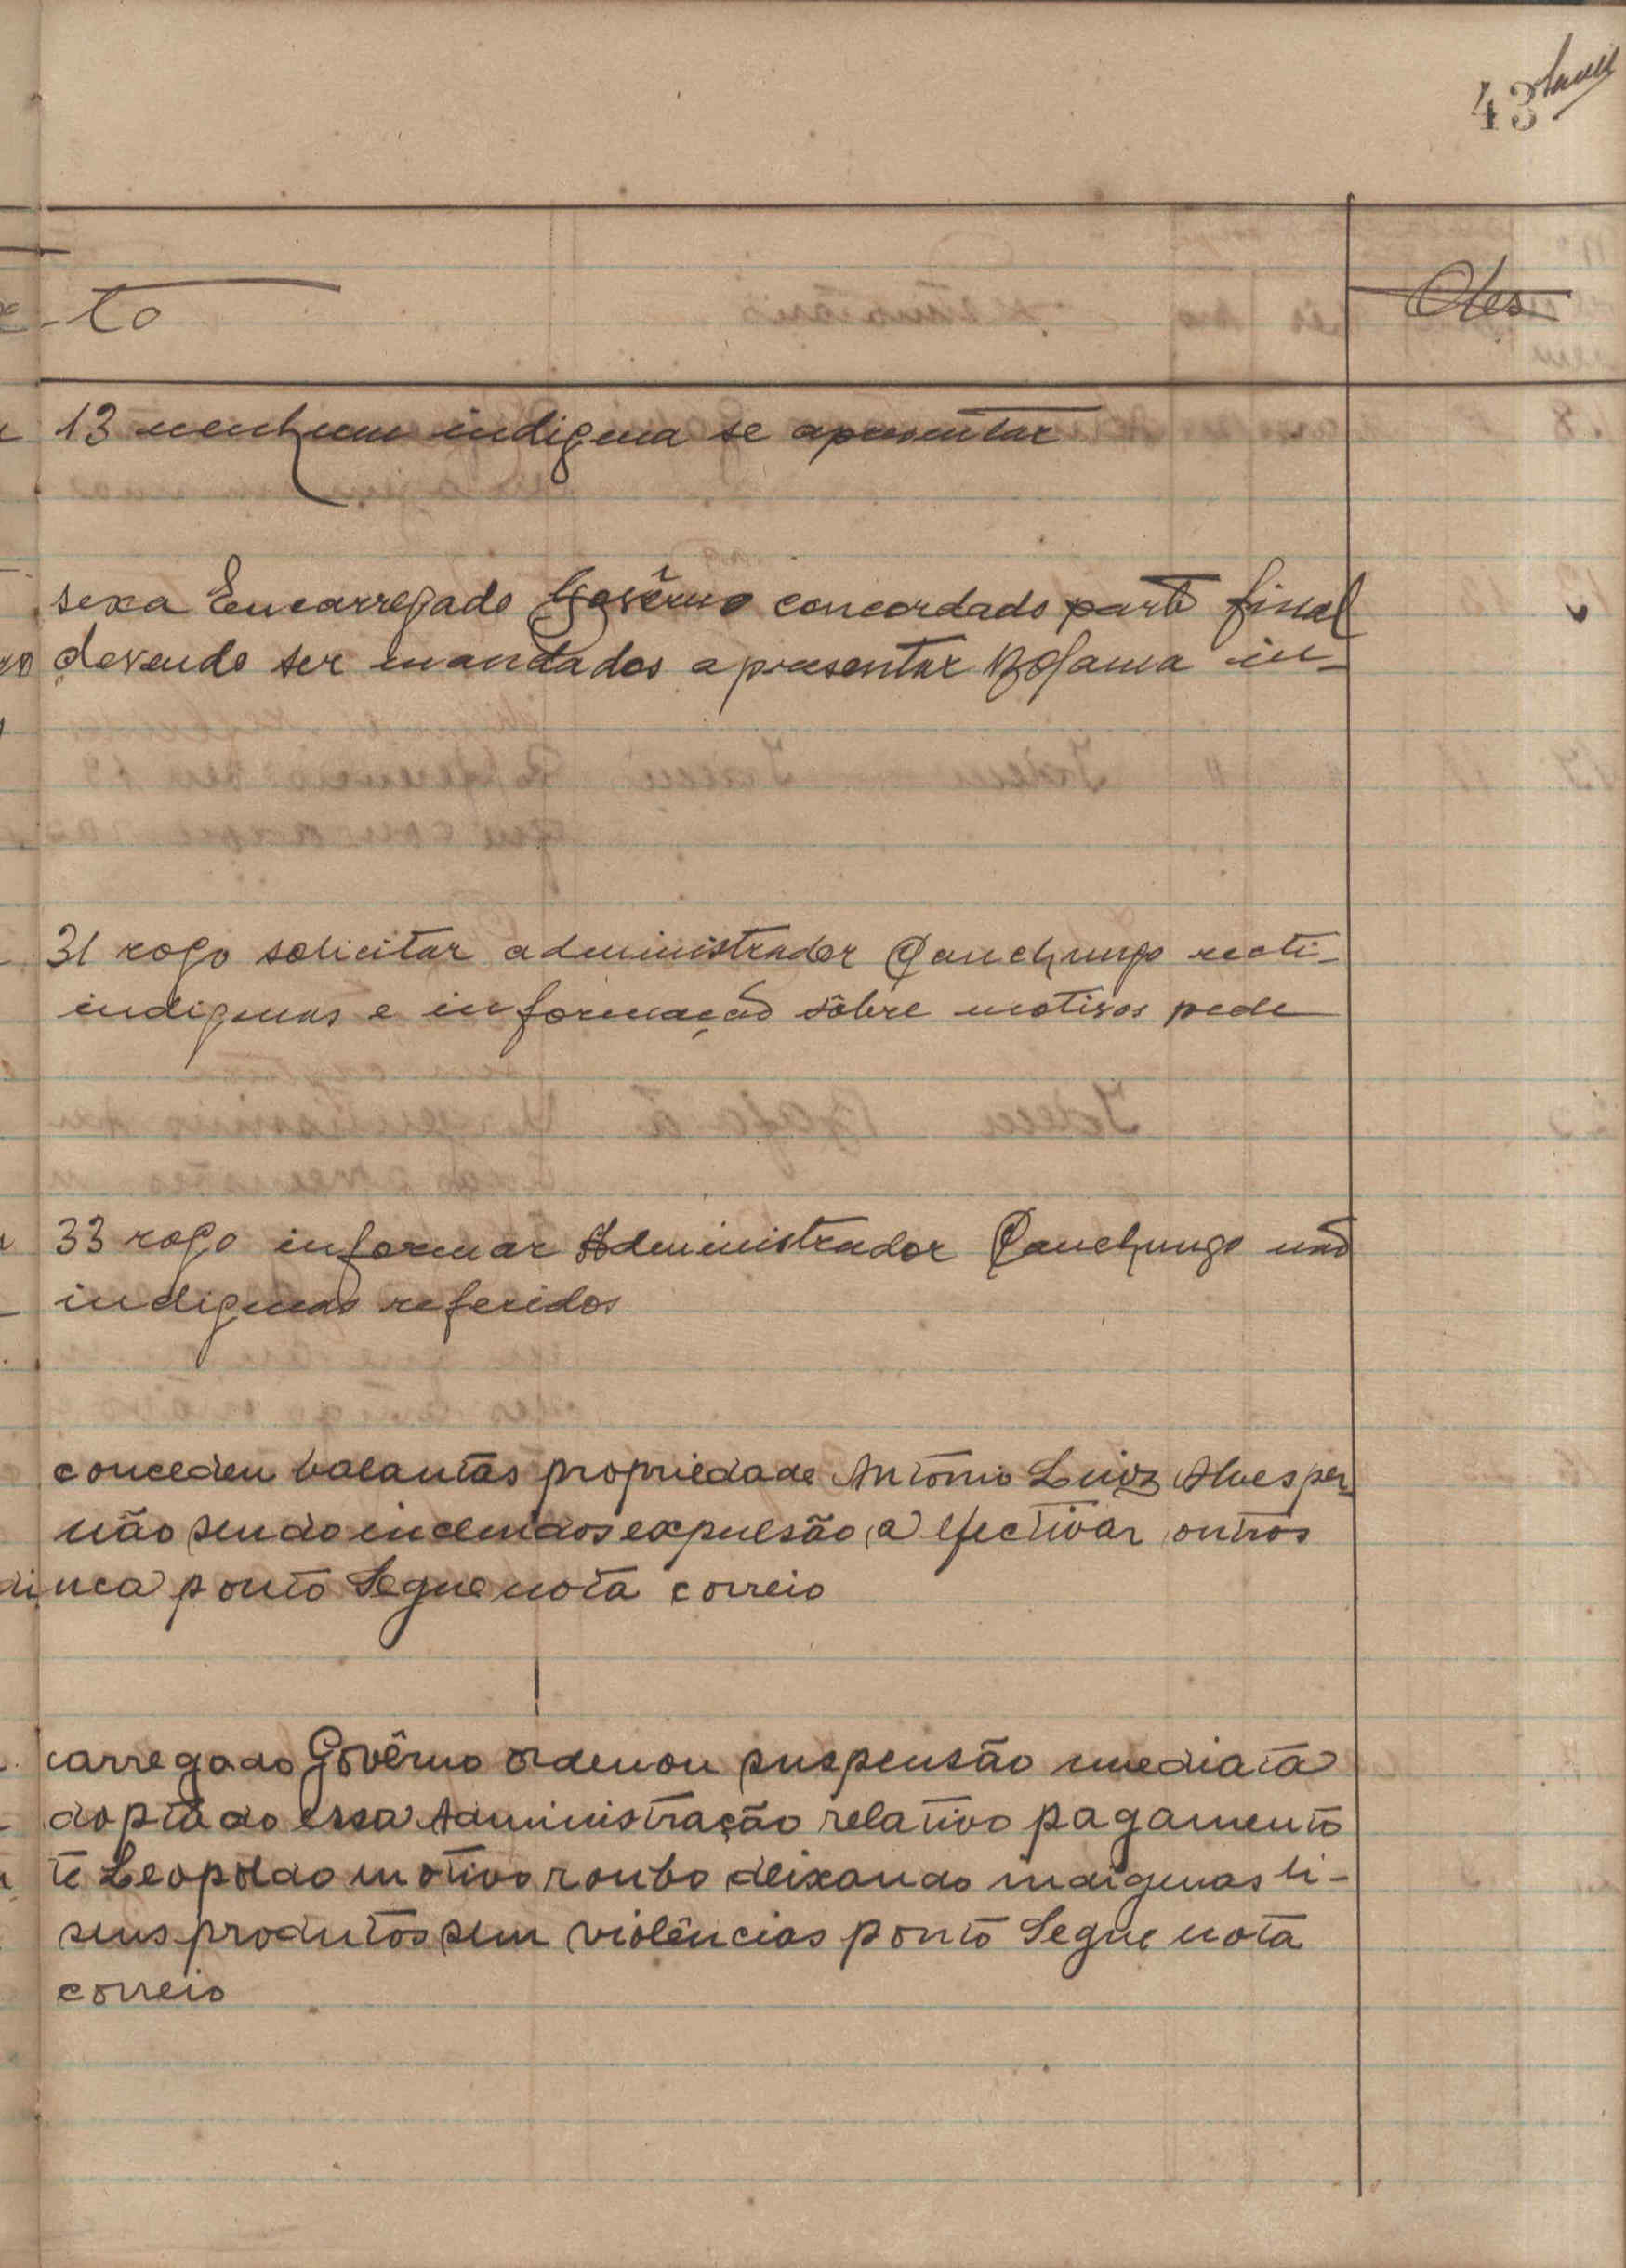 43
to
Obs
13 nenhum indigena se apresentar
sexa Encarregado Govêrno concordado parte final
devendo ser mandados apresentar Bolama in-
31 rogo solicitar administrador Canchungo recti-
indigenas e informação sôbre motivos pede
33 rogo informar Administrador Canchungo não
indigenas referidos
concedeu balantas propriedade António Luiz Alves per-
não sendo incluidos expulsão a efectivar outros
nca ponto Segue nota correio
carregado Govêrno ordenou suspensão imediata
doptado essa Administração relativo pagamento
te Leopoldo motivo roubo deixando indigenas li-
seus produtos sem violências ponto Segue nota
correio